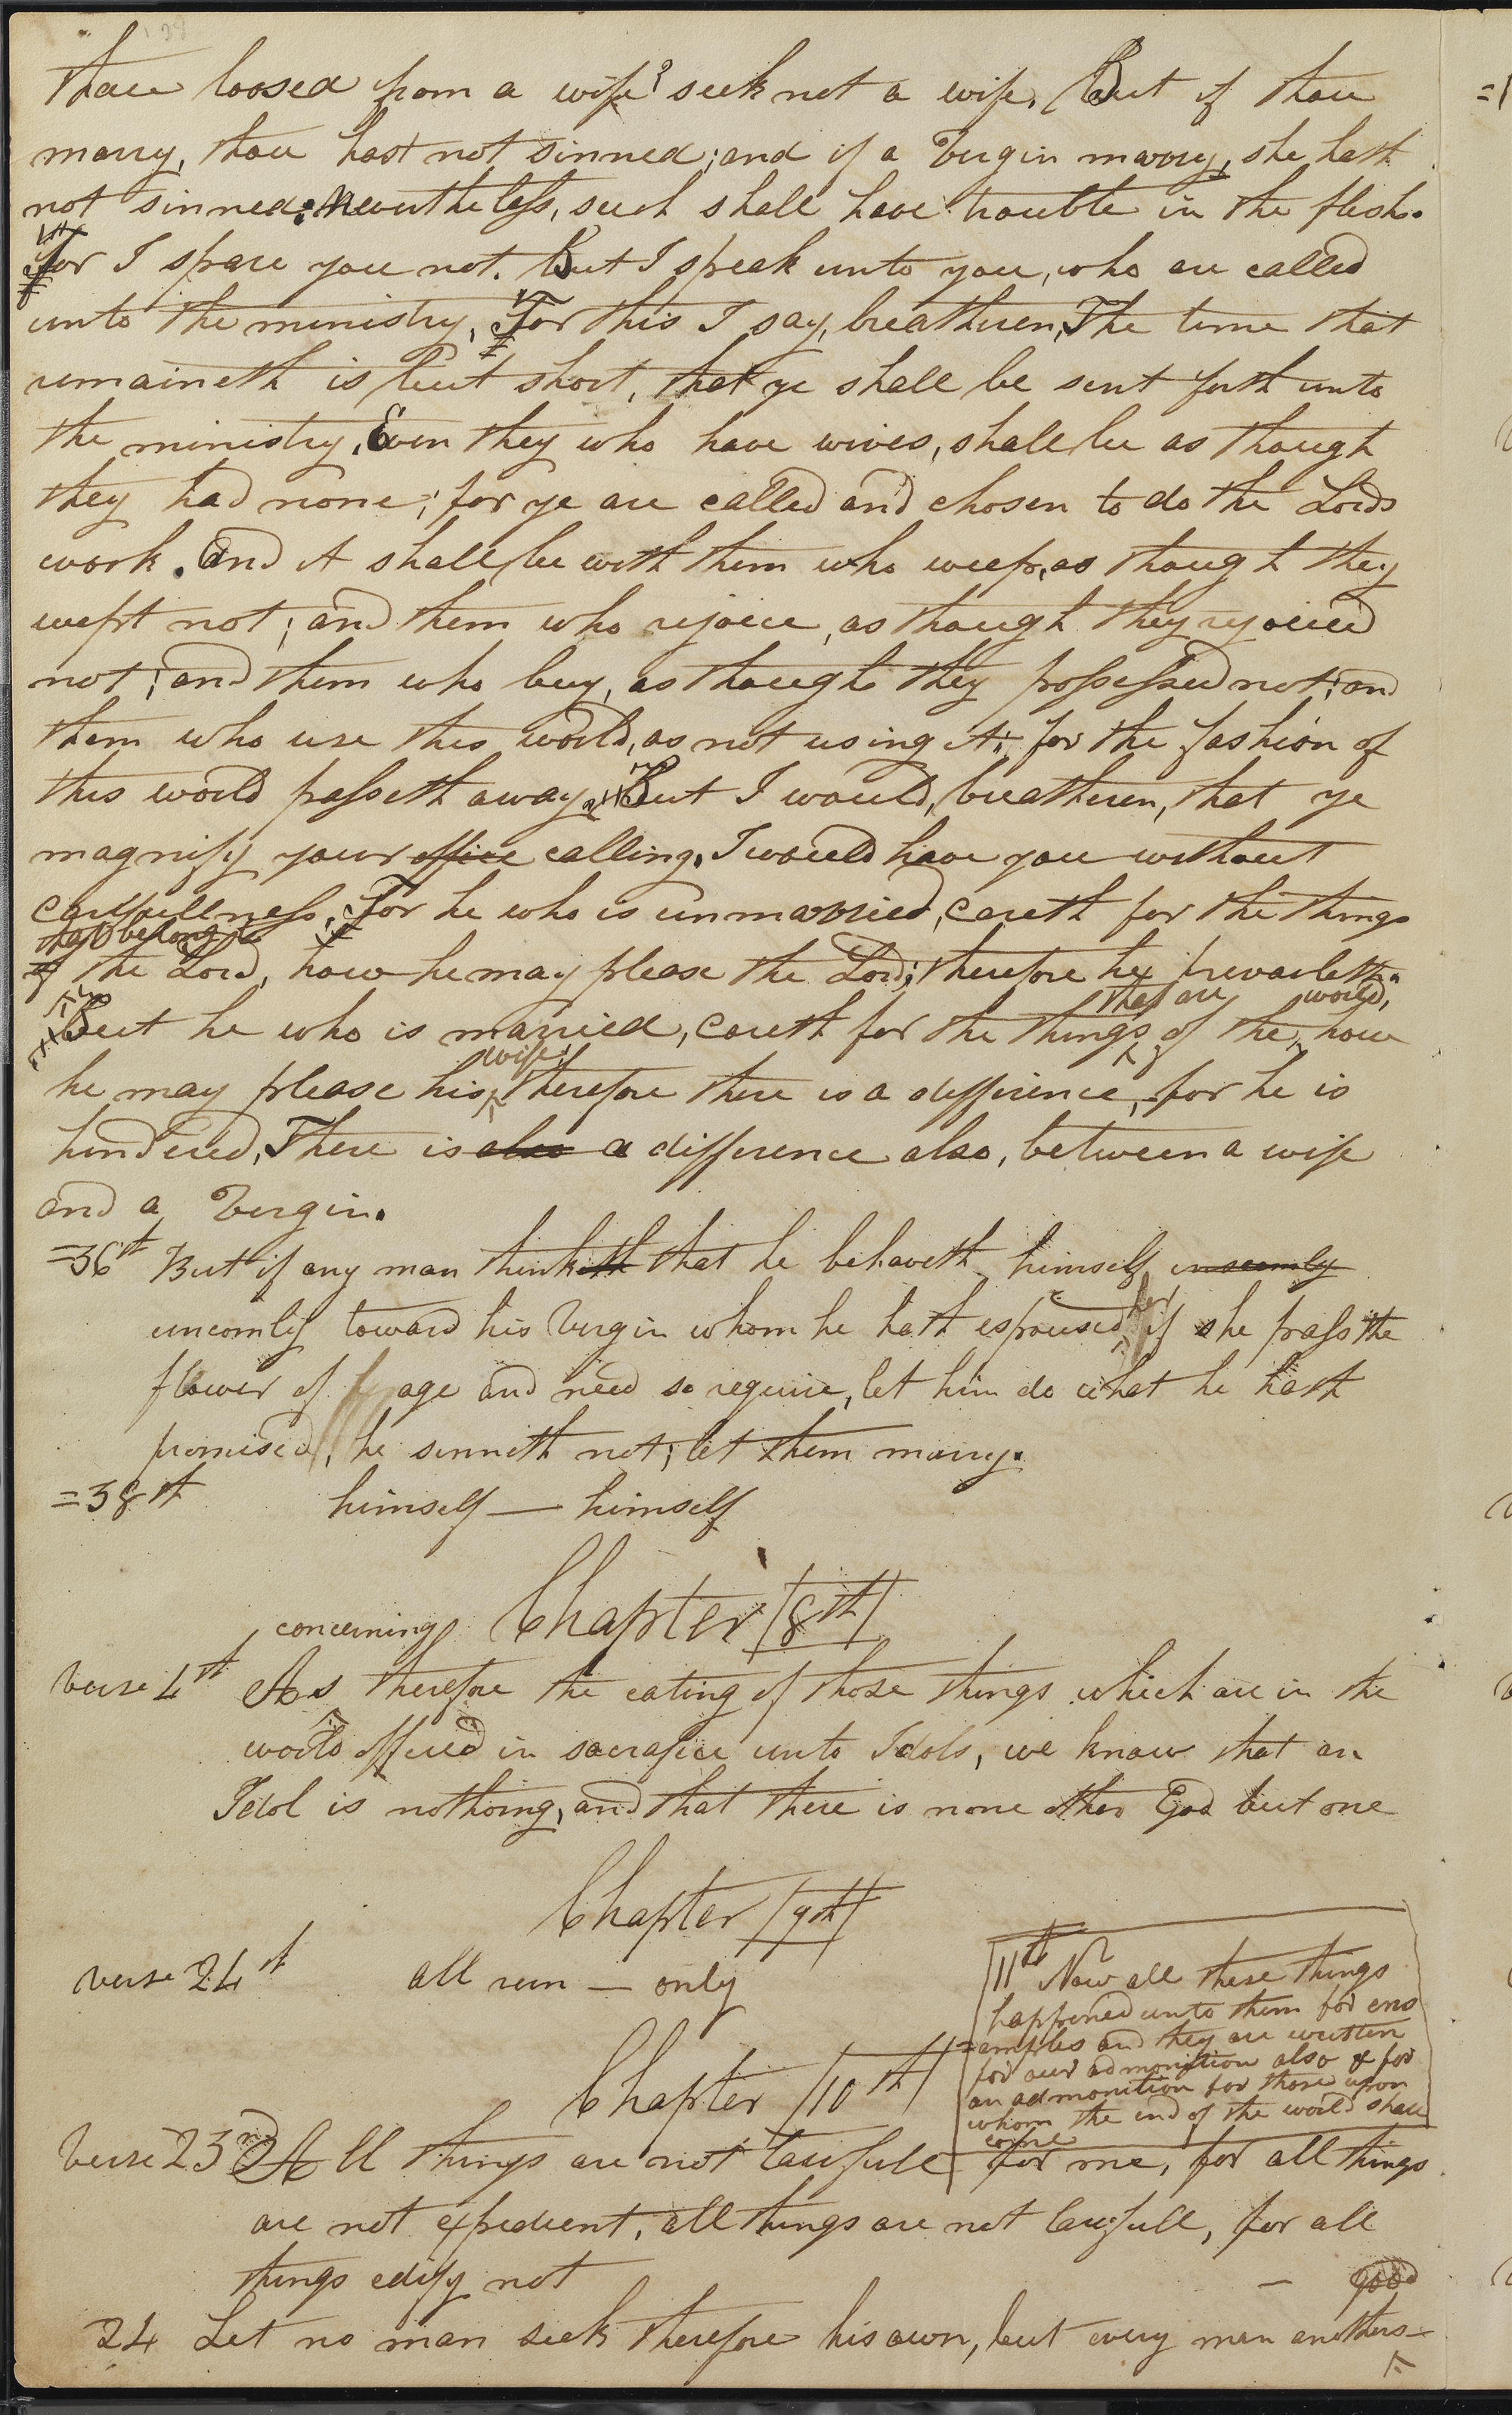 thou loosed from a wife? seek not a wife. But if thou
marry, thou hast not sinned; and if a Virgin marry, she hath
not sinned: Nevertheless, such shall have trouble in the flesh.
For I spare you not. But I speak unto you, who are called
unto the ministry. For this I say, breatheren, The time that
remaineth is but short, that ye shall be sent forth unto
the ministry. Even they who have wives, shall be as though
they had none; for ye are called and chosen to do the Lords
work. And it shall be with them who weep, as though they
wept not; and them who rejoice, as though they rejoiced
not; and them who buy, as though they possessed not; and
them who use this world, as not using it; for the fashion of
this world passeth away. But I would, breatheren, that ye
magnify your office calling. I would have you without
carefullness. For he who is unmarried, careth for the things
that belong to
of the Lord, how he may please the Lord; therefore he prevaileth.
that are world,
But he who is married, careth for the things of the how
wife;
he may please his therefore there is a difference, for he is
hindered. There is also a difference also, between a wife
and a Virgin.
=36th But if any man thinketh that he behaveth himself unseemly
her
uncomly toward his Virgin whom he hath espoused if she pass the
flower of age and need so require, let him do what he hath
promised, he sinneth not; let them marry.
=38th himself — himself
Chapter 8th
concerning
verse 4th As therefore the eating of those things which are in the
world offered in sacrafice unto Idols, we know that an
Idol is nothing, and that there is none other God but one
Chapter 9th
verse 24th all run — only
11th Now all these things
happened unto them for ens
=amples and they are written
for our admonition also & for
an admonition for those upon
whom the end of the world shall
come
Chapter 10th
Verse 23rd All things are not lawfull for me, for all things
are not expedient, all things are not lawfull, for all
things edify not
— good
24 Let no man seek therefore his own, but every man anothers